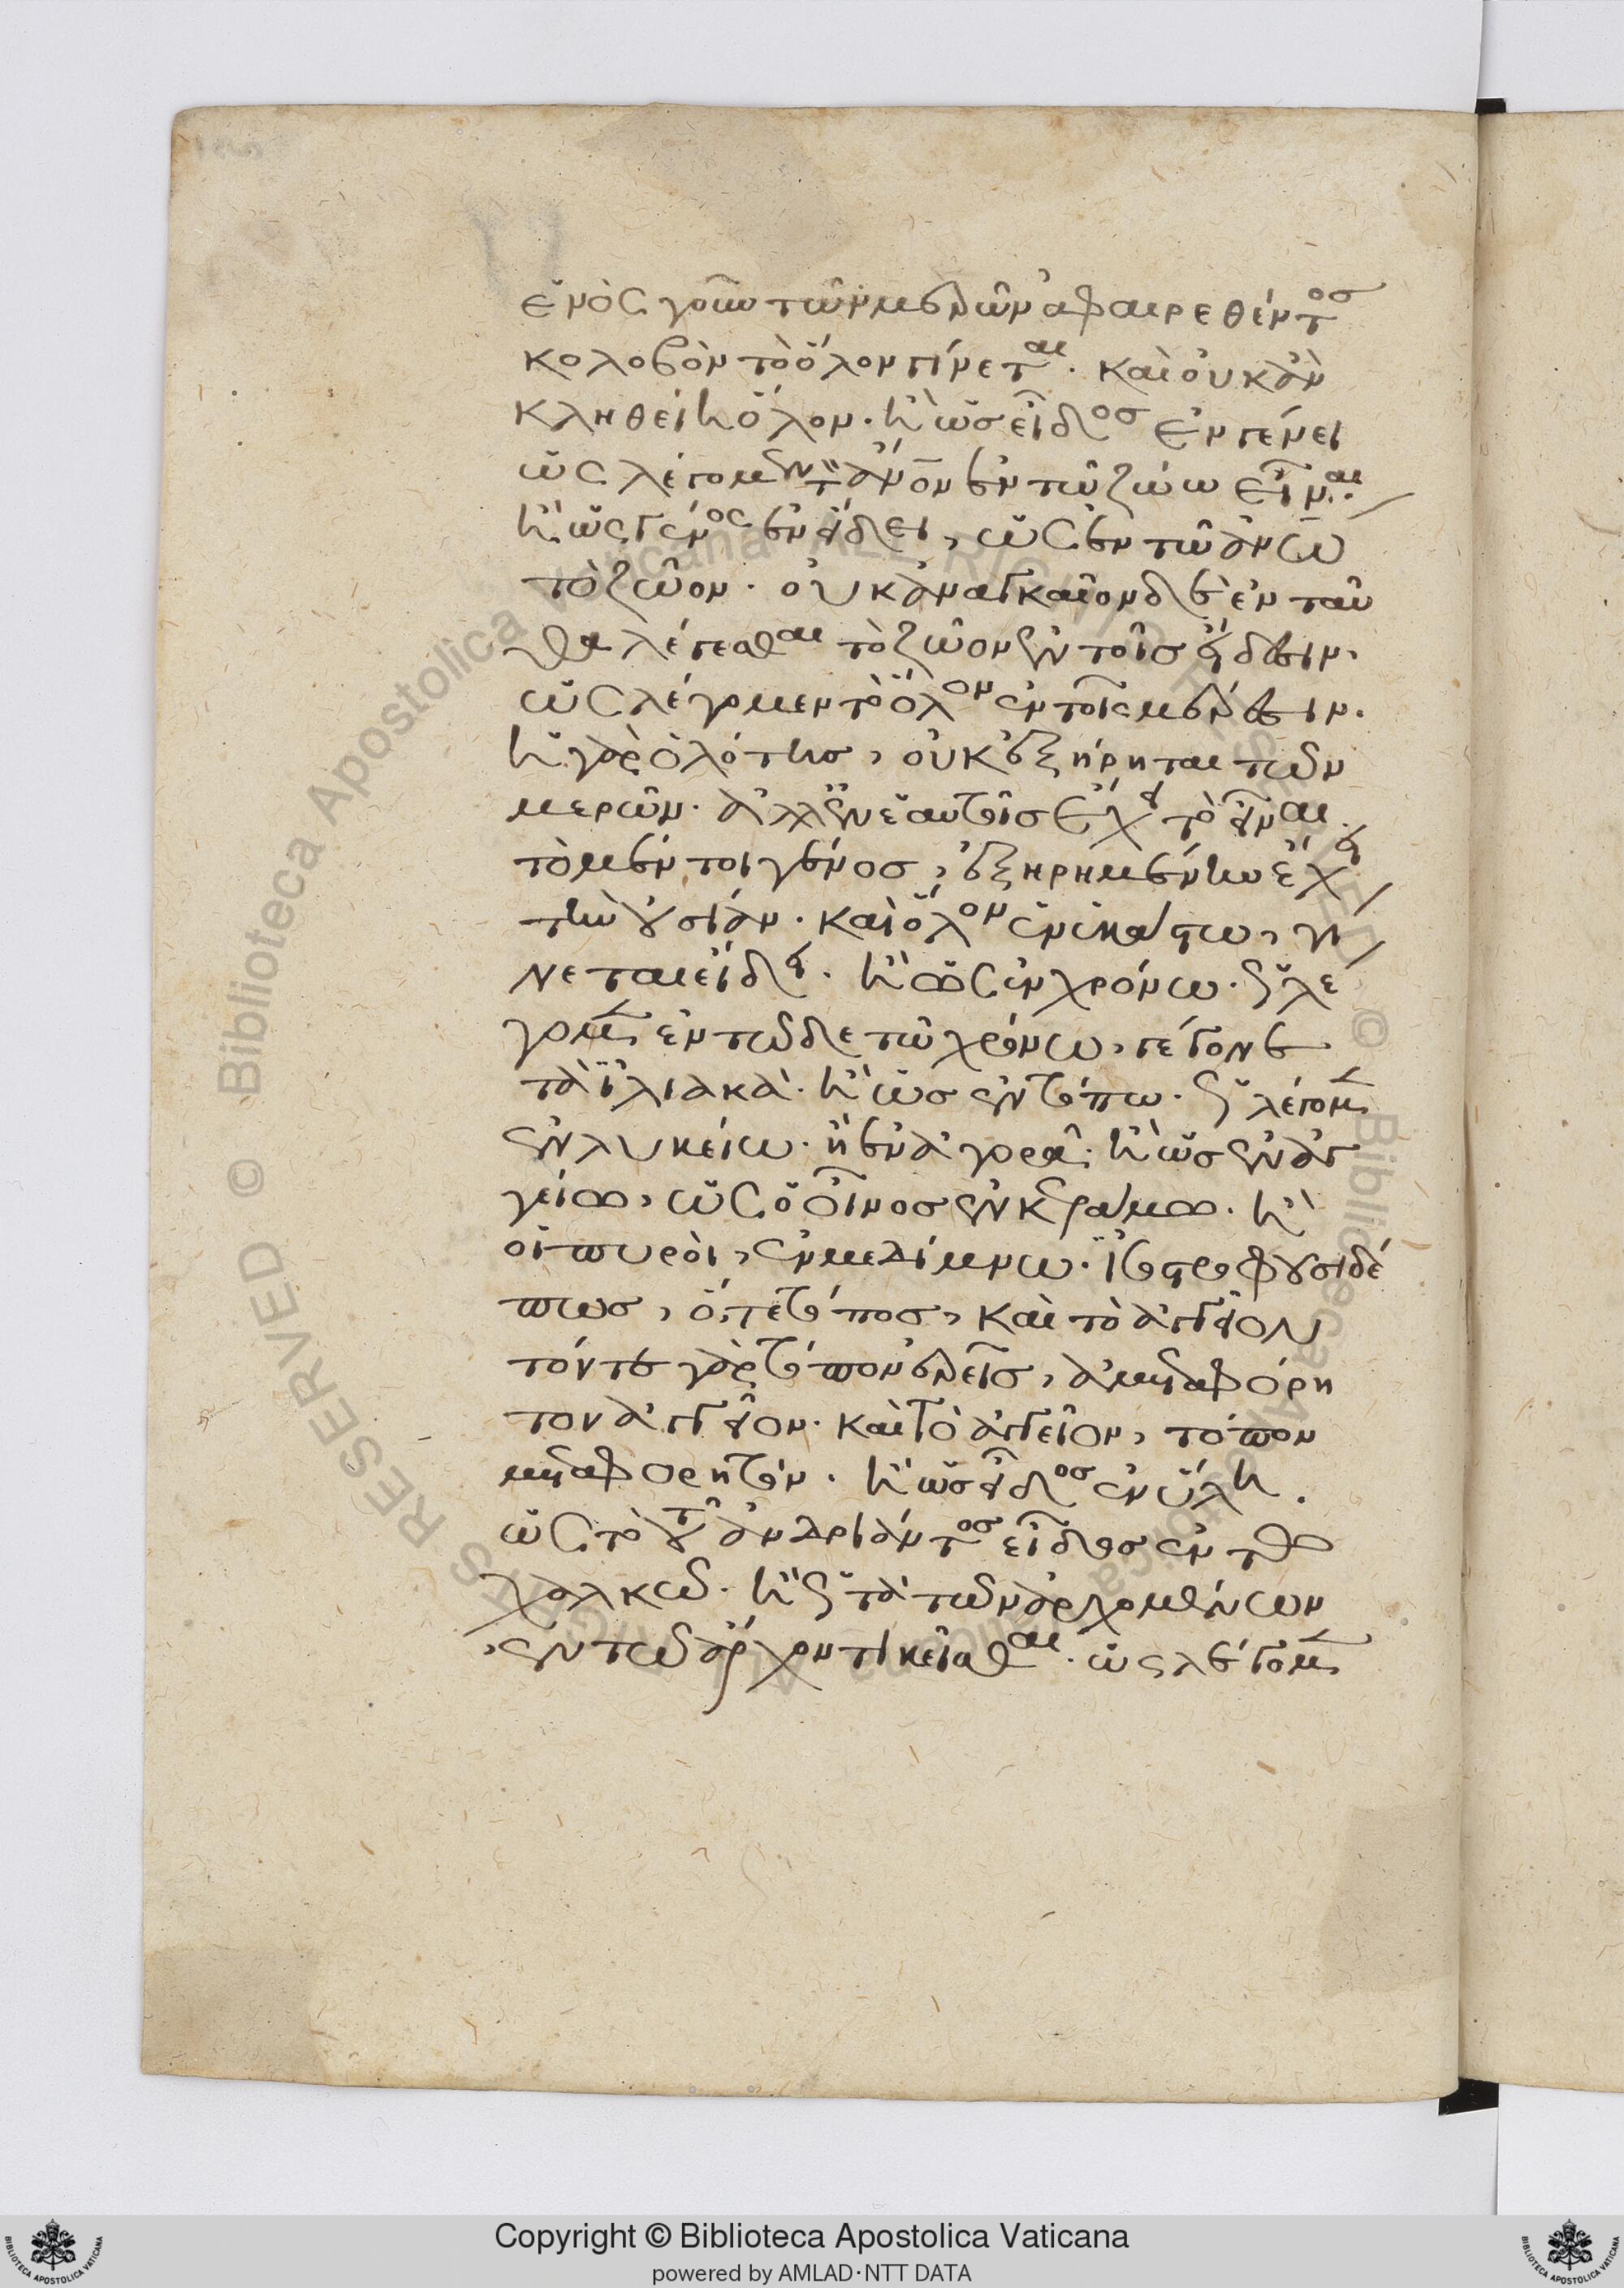 ἑνὸς γοῦν τῶν μερῶν ἀφαιρεθέντος
κολοβὸν τὸ ὅλον γίνεται. καὶ οὐκ ἂν
κληθείη ὅλον. ἢ ὡς εἶδος ἐν γένει
ὡς λέγομεν τὸν ἄνον ἐν τῷ ζώω εἶναι.
ἢ ὡς γένος ἐν εἴδει, ὡς ἐν τῷ ἀνω
τὸ ζῶον. οὐκ ἀναγκαῖον δὲ ἐνταῦ
θα λέγεσθαι τὸ ζῶον ἐν τοῖς εἴδεσιν,
ὡς λέγομεν τὸ ὅλον ἐν τοῖς μέρεσιν.
ἡ γὰρ ὁλότης, οὐκ ἐξήρηται τῶν
μερῶν. ἀλλ' ἐν ἑαυτοῖς ἔχει τὸ εἶναι.
τὸ μέντοι γένος, ἐξηρημένην ἔχει
τὴν οὐσίαν. καὶ ὅλον ἐν ἑκάστω, γί
νεται εἴδει. ἢ ὡς ἐν χρόνω. ὡς λέ
γομεν ἐν τῶδε τῷ χρόνω, γέγονε
τὰ ἰλιακά. ἢ ὡς ἐν τόπω. ὡς λέγομεν
ἐν λυκείω. ἢ ἐν ἀγορᾷ. ἢ ὡς ἐν ἀγ
γείω, ὡς ὁ οἶνος ἐν κεραμίω. ἢ
οἱ πυροὶ, ἐν μεδίμνω. ἀντιστροφουσι δέ
πως, ὅ, τε τόπος, καὶ τὸ ἀγγεῖον
τόν τε γὰρ τόπον ἐρεῖς, ἀμεταφόρη
τον ἀγγεῖον. καὶ τὸ ἀγγεῖον, τόπον
μεταφορητόν. ἢ ὡς εἶδος ἐν ὕλη.
ὡς τὸ τοῦ ἀνδριάντος εἶδος ἐν τῷ
χαλκῷ. ἢ ὡς τὰ τῶν ἀρχομένων
ἐν τῷ ἄρχοντι κεῖσθαι. ὡς λέγομεν
Copyright © Biblioteca Apostolica Vaticana
powered by AMLAD·NTT DATA